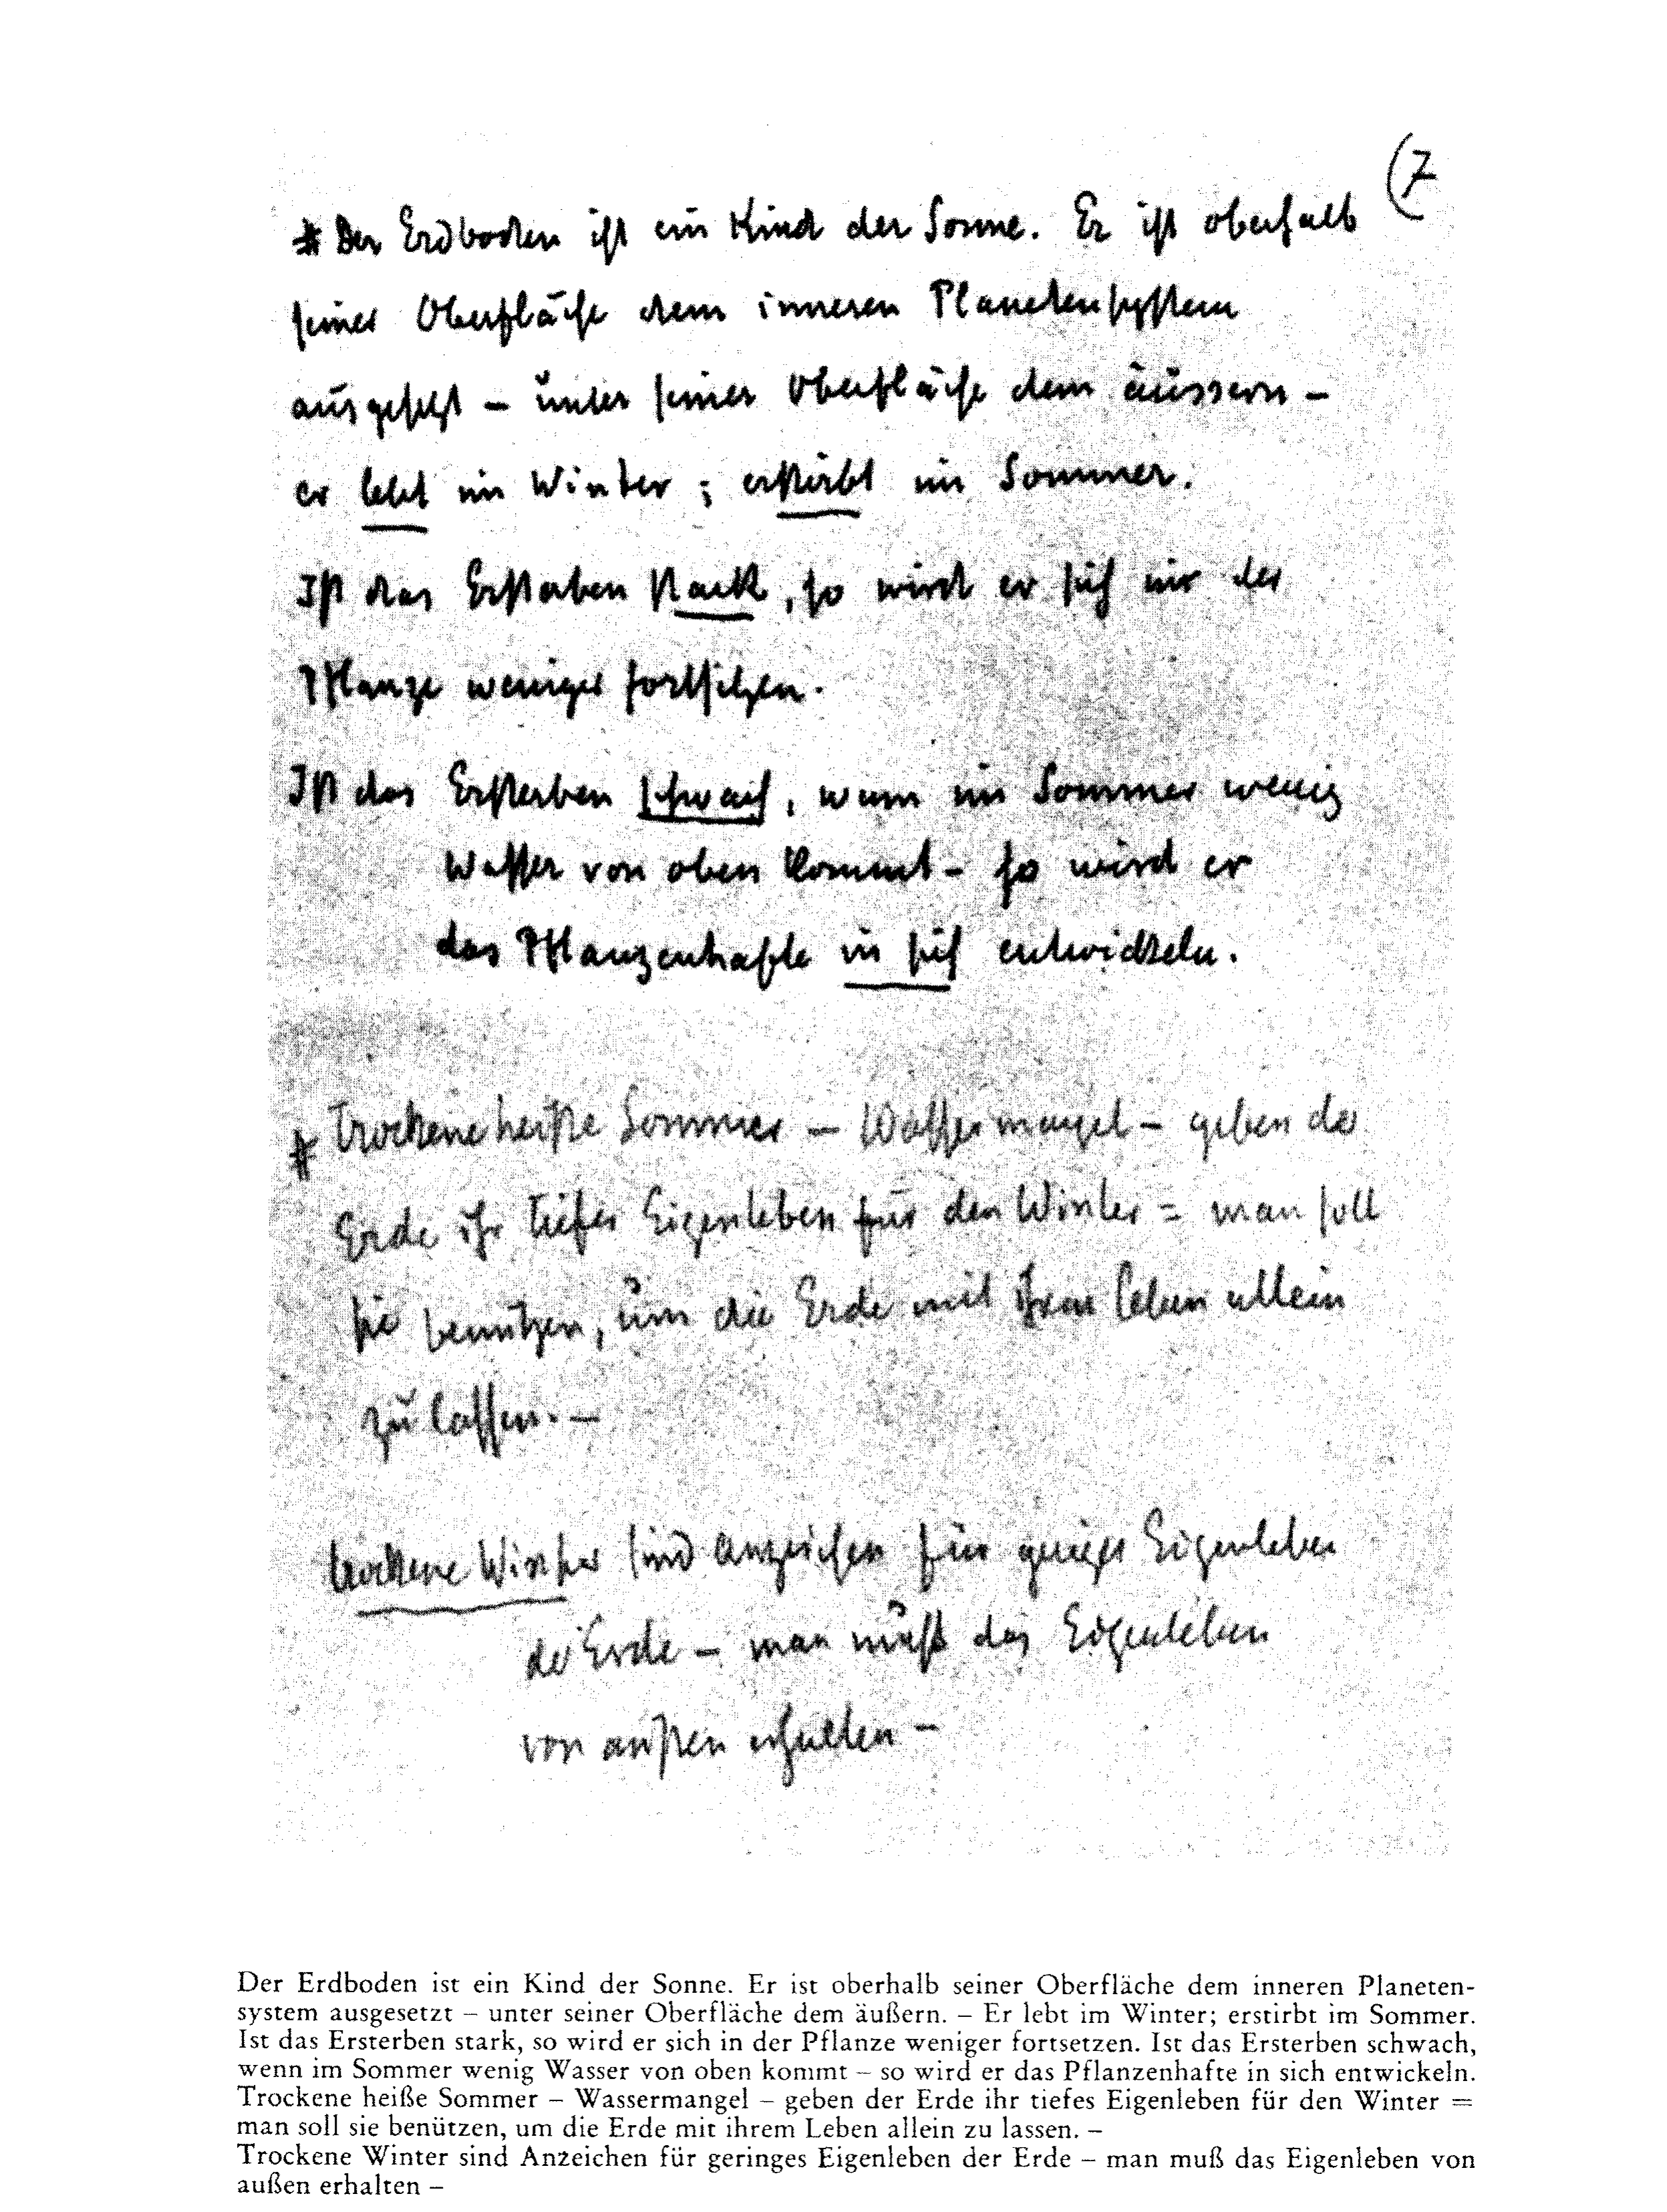 (7
# Der Erdboden ist ein Kind der Sonne. Er ist oberhalb
seiner Oberfläche dem inneren Planetensystem
ausgesetzt – unter seiner Oberfläche dem äussern –
er lebt im Winter; erstirbt im Sommer.
Ist das Ersterben stark, so wird er sich in der
Pflanze weniger fortsetzen.
Ist das Ersterben schwach, wenn im Sommer wenig
Wasser von oben kommt – so wird er
das Pflanzenhafte in sich entwickeln.
# Trockene heiße Sommer – Wassermangel – geben der
Erde ihr tiefes Eigenleben für den Winter = man soll
sie benützen, um die Erde mit ihrem Leben allein
zu lassen. –
trockene Winter sind Anzeichen für geringes Eigenleben
der Erde – man muß das Eigenleben
von außen erhalten –
Der Erdboden ist ein Kind der Sonne. Er ist oberhalb seiner Oberfläche dem inneren Planeten-
system ausgesetzt – unter seiner Oberfläche dem äußern. – Er lebt im Winter; erstirbt im Sommer.
Ist das Ersterben stark, so wird er sich in der Pflanze weniger fortsetzen. Ist das Ersterben schwach,
wenn im Sommer wenig Wasser von oben kommt – so wird er das Pflanzenhafte in sich entwickeln.
Trockene heiße Sommer – Wassermangel – geben der Erde ihr tiefes Eigenleben für den Winter =
man soll sie benützen, um die Erde mit ihrem Leben allein zu lassen. –
Trockene Winter sind Anzeichen für geringes Eigenleben der Erde – man muß das Eigenleben von
außen erhalten –